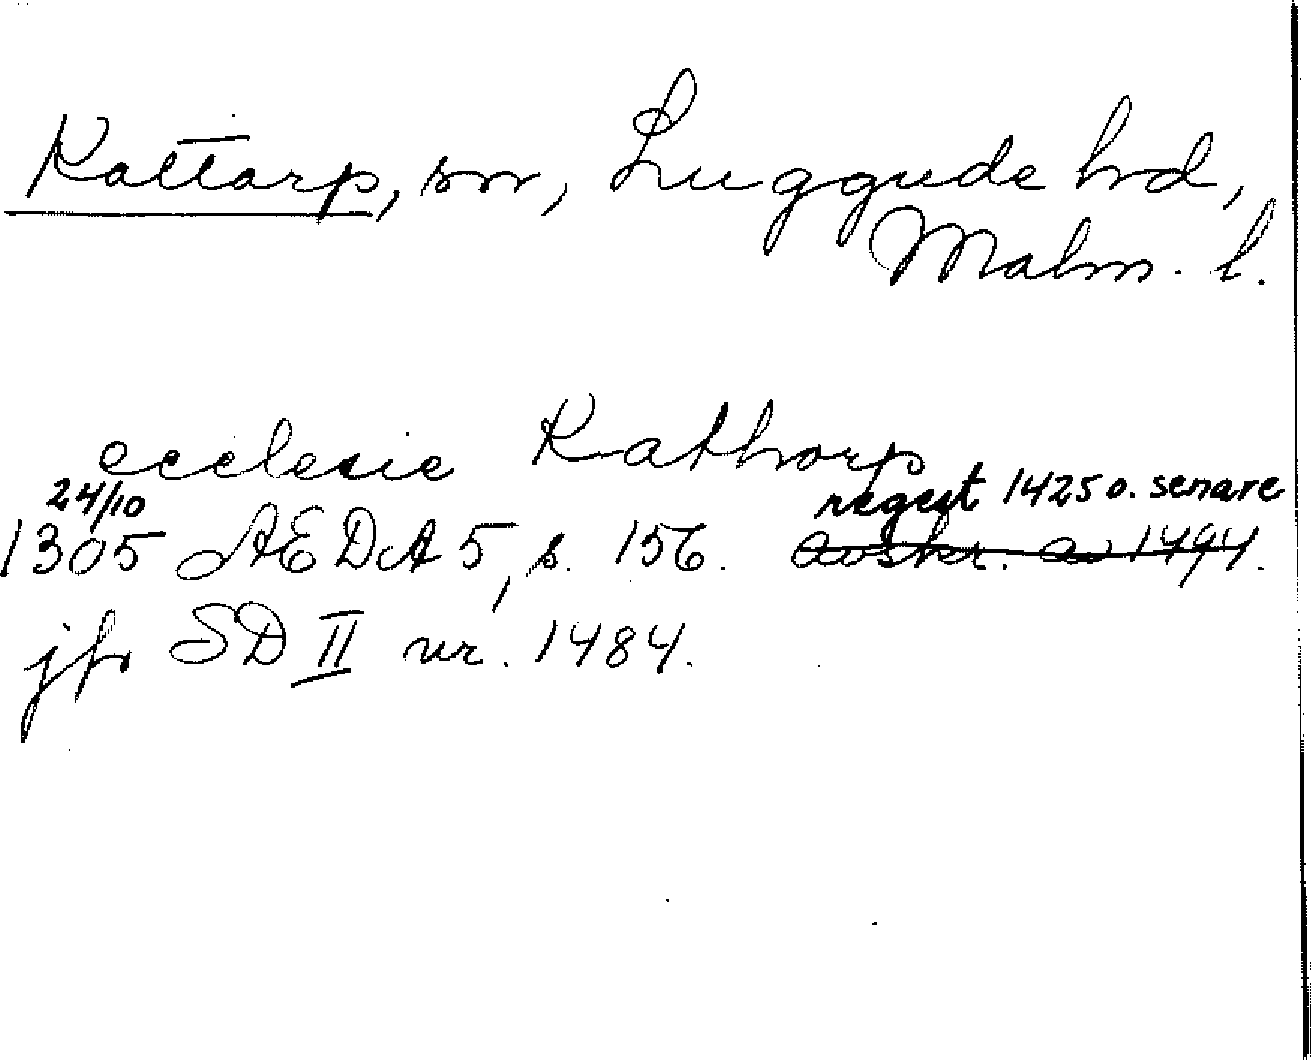 Kattarp, sn, Luggude hd,
Malm. l.
ecclesie Kathorp
24/10 regest 1425 o. senare
1305 AEDA 5, s. 156. avskr. av 1494.
jfr SD II nr. 1484.